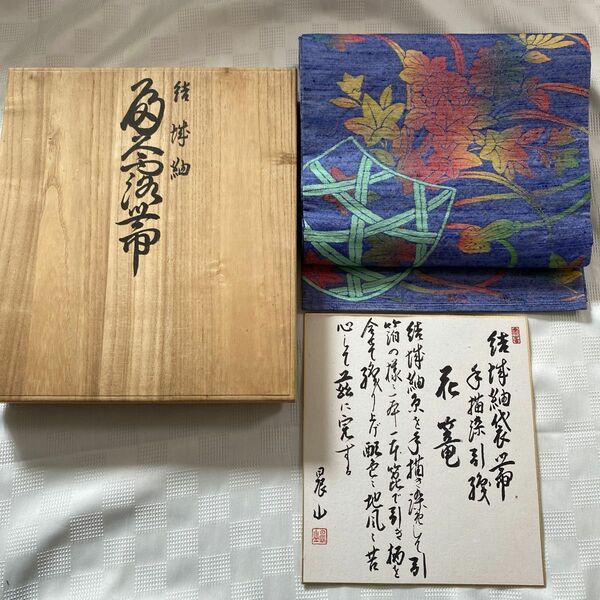 結城紬
帯
結城紬袋帯
手描染引織
花篭
結城紬糸を手描き染色して引
箔の様一本一本箆で引き柄を
合せ織り上げ配色と地風に苦
心して茲に完する
晨山